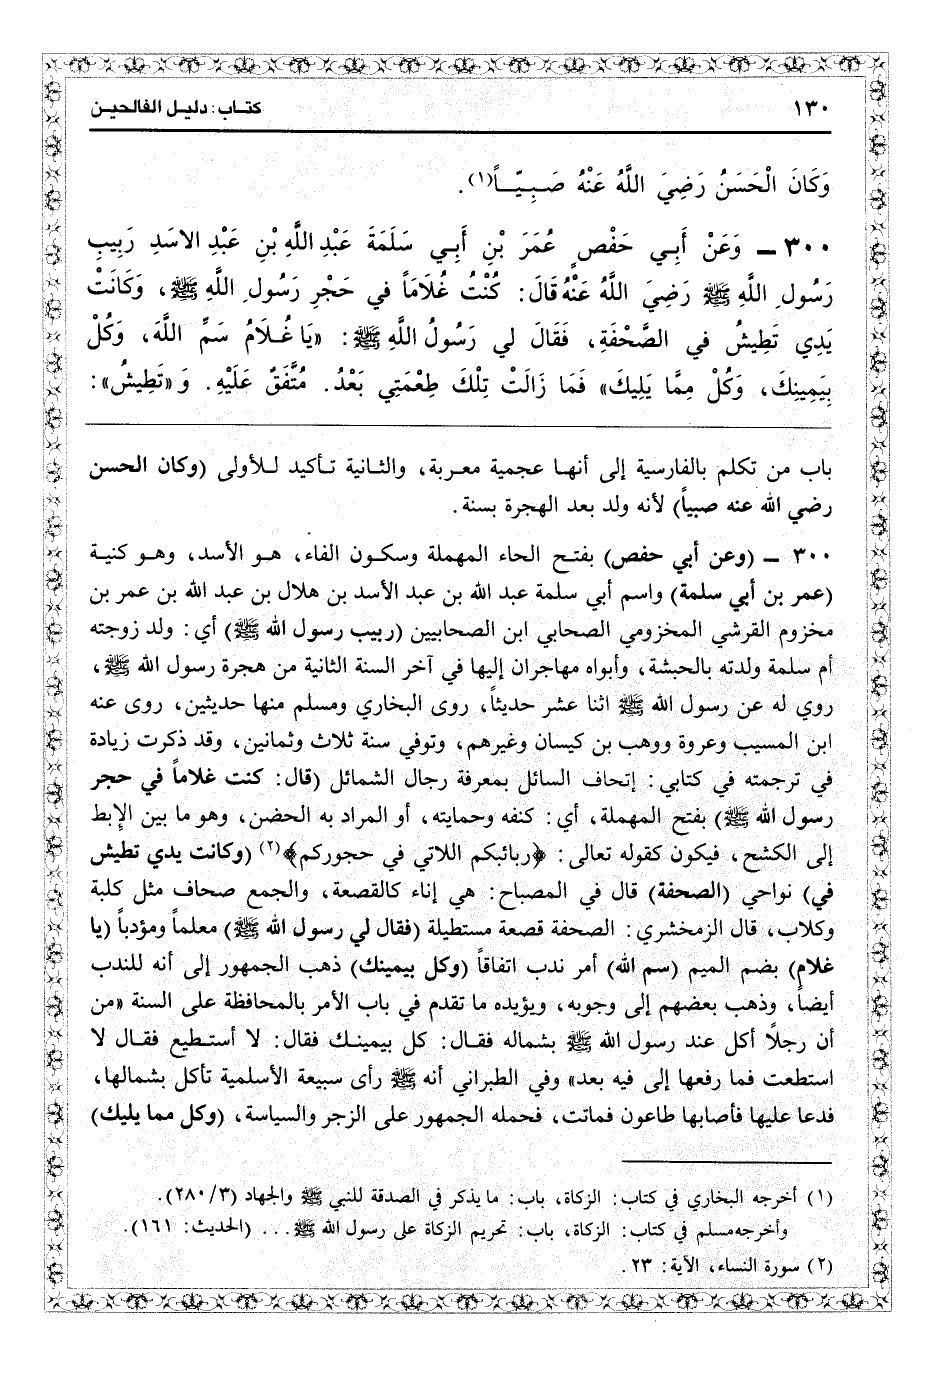 ١٣٠ كتاب: دليل الفالحين
وَكَانَ الْحَسَنُ رَضِيَ اللَّهُ عَنْهُ صَبِيّاً(١).
٣٠٠ ـ وَعَنْ أَبِي حَفْصٍ عُمَرَ بْنِ أَبِي سَلَمَةَ عَبْدِ اللَّهِ بْنِ عَبْدِ الاسَدِ رَبِيبِ
رَسُولِ اللَّهِ ﷺ رَضِيَ اللَّهُ عَنْهُ قَالَ: كُنْتُ غُلَامَاً في حَجْرِ رَسُولِ اللَّهِ ﷺ، وَكَانَتْ
يَدِي تَطِيشُ في الصَّحْفَةِ، فَقَالَ لي رَسُولُ اللَّهِ ﷺ: «يَا غُلَامُ سَمِّ اللَّهَ، وَكُلْ
بِيَمِينِكَ، وَكُلْ مِمَّا يَلِيكَ» فَمَا زَالَتْ تِلْكَ طِعْمَتِي بَعْدُ. مُتَّفَقٌ عَلَيْهِ. وَ«تَطِيشُ»:
باب من تكلم بالفارسية إلى أنها عجمية معربة، والثانية تأكيد للأولى (وكان الحسن
رضي الله عنه صبياً) لأنه ولد بعد الهجرة بسنة.
٣٠٠ ـ (وعن أبي حفص) بفتح الحاء المهملة وسكون الفاء، هو الأسد، وهو كنية
(عمر بن أبي سلمة) واسم أبي سلمة عبد الله بن عبد الأسد بن هلال بن عبد الله بن عمر بن
مخزوم القرشي المخزومي الصحابي ابن الصحابيين (ربيب رسول الله ﷺ) أي: ولد زوجته
أم سلمة ولدته بالحبشة، وأبواه مهاجران إليها في آخر السنة الثانية من هجرة رسول الله ﷺ،
روي له عن رسول الله ﷺ اثنا عشر حديثاً، روى البخاري ومسلم منها حديثين، روى عنه
ابن المسيب وعروة ووهب بن كيسان وغيرهم، وتوفي سنة ثلاث وثمانين، وقد ذكرت زيادة
في ترجمته في كتابي: إتحاف السائل بمعرفة رجال الشمائل (قال: كنت غلاماً في حجر
رسول الله ﷺ) بفتح المهملة، أي: كنفه وحمايته، أو المراد به الحضن، وهو ما بين الإبط
إلى الكشح، فيكون كقوله تعالى: ﴿ربائبكم اللاتي في حجوركم﴾(٢) (وكانت يدي تطيش
في) نواحي (الصحفة) قال في المصباح: هي إناء كالقصعة، والجمع صحاف مثل كلبة
وكلاب، قال الزمخشري: الصحفة قصعة مستطيلة (فقال لي رسول الله ﷺ) معلماً ومؤدباً (يا
غلام) بضم الميم (سم الله) أمر ندب اتفاقاً (وكل بيمينك) ذهب الجمهور إلى أنه للندب
أيضاً، وذهب بعضهم إلى وجوبه، ويؤيده ما تقدم في باب الأمر بالمحافظة على السنة «من
أن رجلاً أكل عند رسول الله ﷺ بشماله فقال: كل بيمينك فقال: لا أستطيع فقال لا
استطعت فما رفعها إلى فيه بعد» وفي الطبراني أنه ﷺ رأى سبيعة الأسلمية تأكل بشمالها،
فدعا عليها فأصابها طاعون فماتت، فحمله الجمهور على الزجر والسياسة، (وكل مما يليك)
(١) أخرجه البخاري في كتاب: الزكاة، باب: ما يذكر في الصدقة للنبي ﷺ والجهاد (٢٨٠/٣).
وأخرجه مسلم في كتاب: الزكاة، باب: تحريم الزكاة على رسول الله ﷺ... (الحديث: ١٦١).
(٢) سورة النساء، الآية: ٢٣.